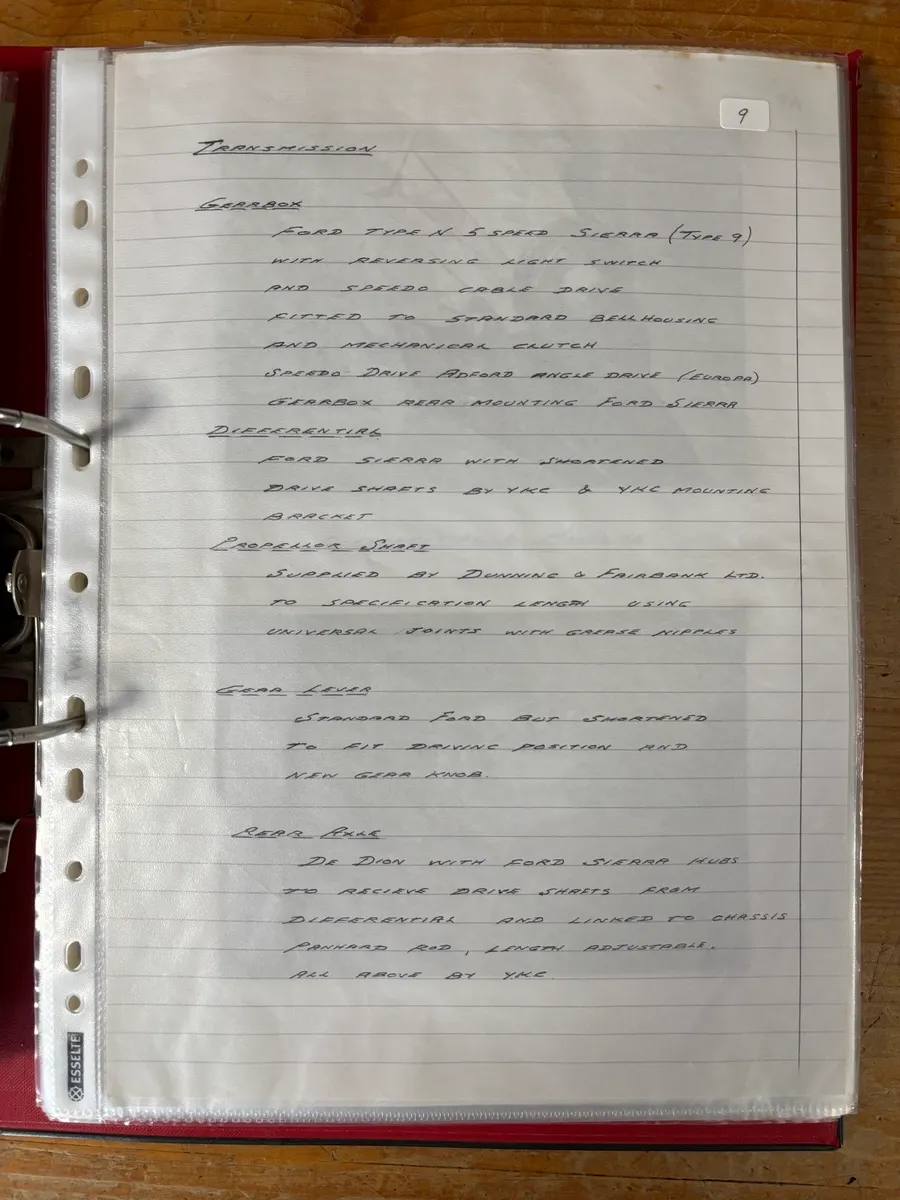 9
TRANSMISSION
GEARBOX
FORD TYPE N 5 SPEED SIERRA (TYPE 9)
WITH REVERSING LIGHT SWITCH
AND SPEEDO CABLE DRIVE
FITTED TO STANDARD BELLHOUSING
AND MECHANICAL CLUTCH
SPEEDO DRIVE ADFORD ANGLE DRIVE (EUROPA)
GEARBOX REAR MOUNTING FORD SIERRA
DIFFERENTIAL
FORD SIERRA WITH SHORTENED
DRIVE SHAFTS BY YKC & YKC MOUNTING
BRACKET
PROPELLOR SHAFT
SUPPLIED BY DUNNING & FAIRBANK LTD.
TO SPECIFICATION LENGTH USING
UNIVERSAL JOINTS WITH GREASE NIPPLES
GEAR LEVER
STANDARD FORD BUT SHORTENED
TO FIT DRIVING POSITION AND
NEW GEAR KNOB.
REAR AXLE
DE DION WITH FORD SIERRA HUBS
TO RECIEVE DRIVE SHAFTS FROM
DIFFERENTIAL AND LINKED TO CHASSIS
PANHARD ROD, LENGTH ADJUSTABLE.
ALL ABOVE BY YKC.
ESSELTE